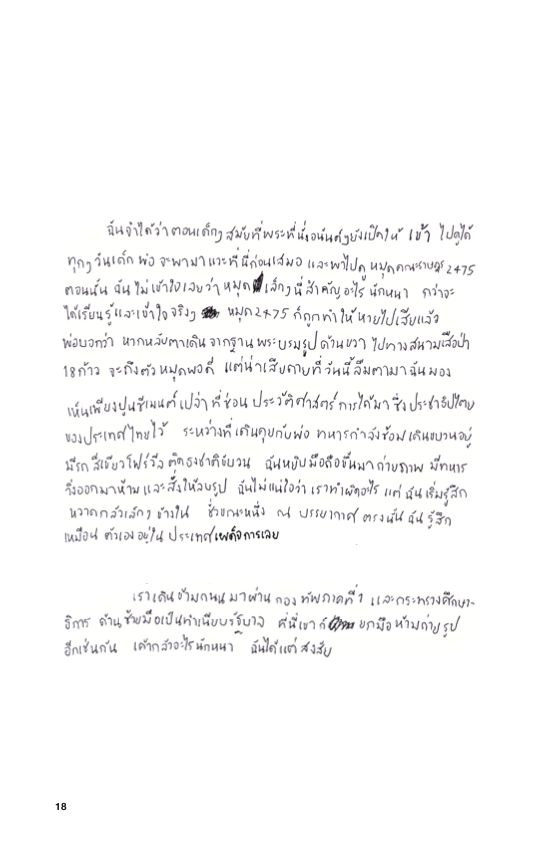 ฉันจำได้ว่าตอนเด็กๆ สมัยที่พระที่นั่งอนันต์ฯยังเปิดให้ เข้า ไปดูได้
ทุกๆ วันเด็ก พ่อ จะพามาแวะที่นี่ก่อนเสมอ และพาไปดู หมุดคณะราษฎร 2475
ตอนนั้น ฉัน ไม่เข้าใจเลยว่า หมุด เล็กๆ นี่ สำคัญอะไร นักหนา กว่าจะ
ได้เรียนรู้และเข้าใจ จริงๆ หมุด2475 ก็ถูกทำให้ หายไปเสียแล้ว
พ่อบอกว่า หากหลับตาเดิน จากฐาน พระบรมรูป ด้านขวา ไปทางสนามเสือป่า
18ก้าว จะถึงตัว หมุดพอดี แต่น่าเสียดายที่ วันนี้ลืมตามา ฉันมอง
เห็นเพียงปูนซีเมนต์เปล่า ที่ซ่อน ประวัติศาสตร์ การได้มา ซึ่ง ประชาธิปไตย
ของประเทศไทยไว้ ระหว่างที่เดินคุยกับพ่อ ทหารกำลังซ้อม เดินขบวนอยู่
มีรถ สี่เขียวโฟร์วีล ติดธงชาติขับวน ฉันหยิบมือถือขึ้นมาถ่ายภาพ มีทหาร
วิ่งออกมาห้าม และสั่งให้ลบรูป ฉันไม่แน่ใจว่า เราทำผิดอะไร แต่ ฉันเริ่มรู้สึก
หวาดกลัวเล็กๆ ข้างใน ชั่วขณะหนึ่ง ณ บรรยากาศ ตรงนั้น ฉัน รู้สึก
เหมือน ตัวเองอยู่ใน ประเทศเผด็จการเลย
เราเดินข้ามถนน มาผ่าน กอง ทัพภาคที่1 และกระทรวงศึกษา-
ธิการ ด้านซ้ายมือเป็นทำเนียบรัฐบาล ที่นี่เขา ก็ ยกมือ ห้ามถ่ายรูป
อีกเช่นกัน เค้ากลัวอะไรนักหนา ฉันได้แต่ สงสัย
18